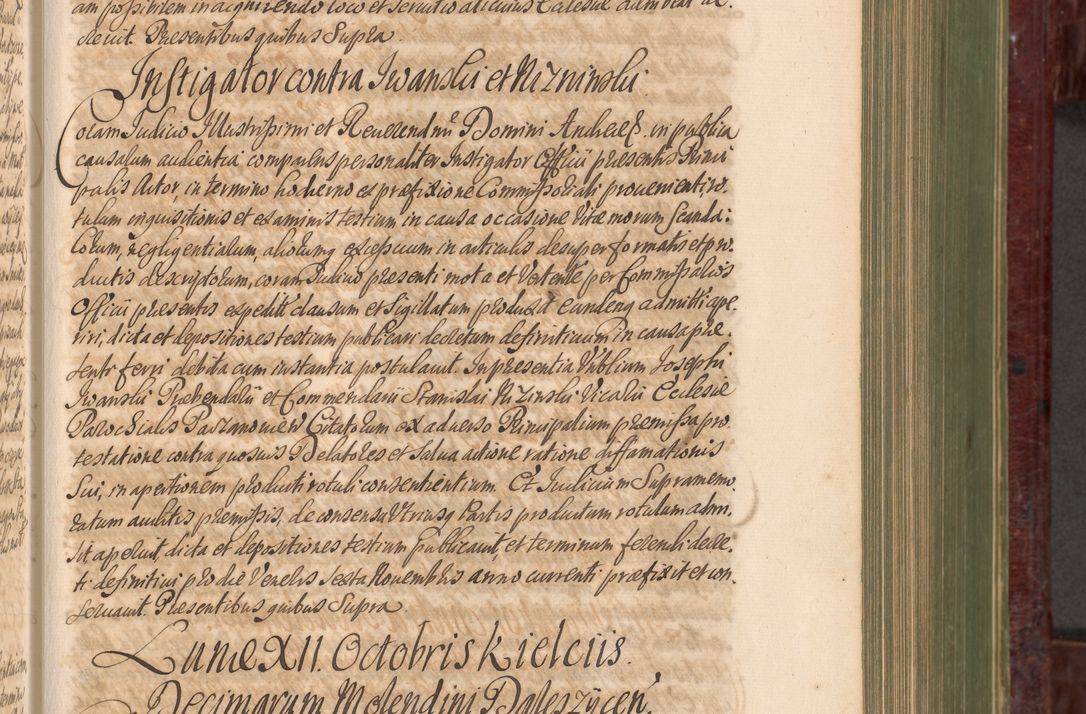 am possibilem in acquirendo loco et servitio alicuius Ecclesiae admitti de
crevit. Praesentibus quibus Supra.
Instigator contra Iwanski et Nizninski.
Coram Iudicio Illustrissimi et Reverendmi Domini Andreae in publica
causarum audientia comparens personaliter Instigator Officii praesentis Princi
palis Actor, in termino hodierno ex praefixione Commissoriali provenienti ro.
tulum inquisitionis et examinis testium in causa occasione vitae morum scanda:
losorum, negligentiarum, aliorumq excessuum in articulis desuper formatis et pro.
ductis descriptorum, coram Iudicio praesenti mota et vertente per Commissarios
Officii praesentis expedit clausum et sigillatum produxit eundemq admitti ape.
riri, dicta et depositiones testium publicari decretum definitivum in causa prae.
senti ferri debita cum instantia postulavit. In praesentia Vblium Iosephi
Iwanski Praebendarii et Commendarii Stanislai Nizinski Vicarii Ecclesiae
Parochialis Pacanoviens Citatorum ex adverso Principalium praemissa pro
testatione contra quosvis Delatores et salva actione ratione diffamationis
sui, in apertionem producti rotuli consentientium. Et Iudicium Supramemo.
ratum auditis praemissis, de consensu Utriusq Partis productum rotulum admi.
sit aperuit dicta et depositiones testium publicavit et terminum ferendi decre.
ti definitivi pro die Veneris sexta Novembris anno currenti praefixit et con.
servavit. Praesentibus quibus Supra.
Lunae XII. Octobris Kielciis.
Decimarum Molendini Daleszycen.